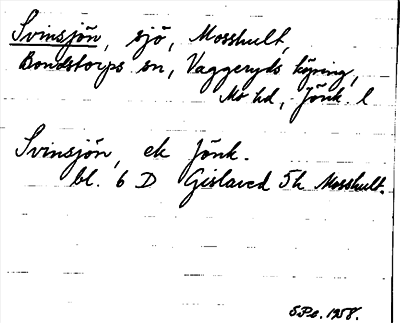 Svinsjön, sjö, Mosshult,
Bondstorps sn, Vaggeryds köping,
Mo hd, Jönk. l
Svinsjön, ek Jönk.
bl. 6 D Gislaved 5h Mosshult.
1958.